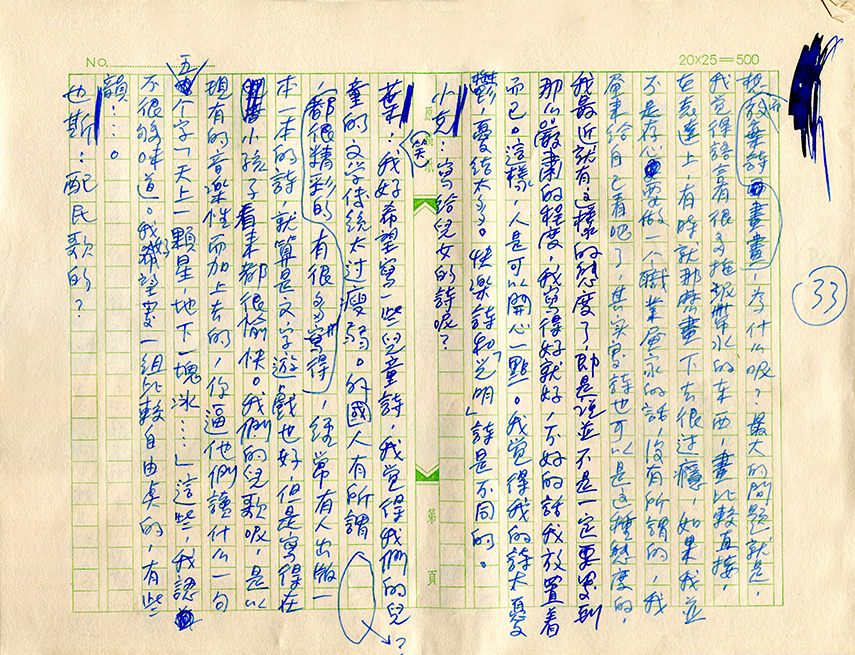 No.
20×25=500
33
想放棄詩畫畫，為什么呢？最大的問題就是，
我覺得語言有很多拖泥帶水的东西，畫比較直接，
在表達上，有時就那麽畫下去很过癮，如果我並
不是存心要做一个職業畫家的話，沒有所謂的，我
畫來給自己看吧了，其实寫詩也可以是这種態度的，
我最近就有这樣的態度了，即是說並不是一定要寫到
那么嚴肅的程度，我寫得好就好，不好的話我放置着
而已。這樣，人是可以開心一點。我覚得我的詩太憂
鬱，憂结太多。快樂詩和「光明」詩是不同的。
小克：寫给兒女的詩呢？
葉：（笑）我好希望寫一些兒童詩，我覚得我們的兒
童的文学传統太过瘦弱。的國人有所謂 ？
（都很精彩的有很多寫得，经常有人出版一
本一本的詩，就算是文字遊戲也好，但是寫得在
小孩子看来都很愉快。我們的兒歌呢，是以
現有的音樂性而加上去的，你逼他們讀什么一句
五个字「天上一顆星，地下一塊冰……」這些，我認
不很夠味道。我好希望寫一組比較自由奌的，有些
韻……。
也斯：配民歌的？
第 頁